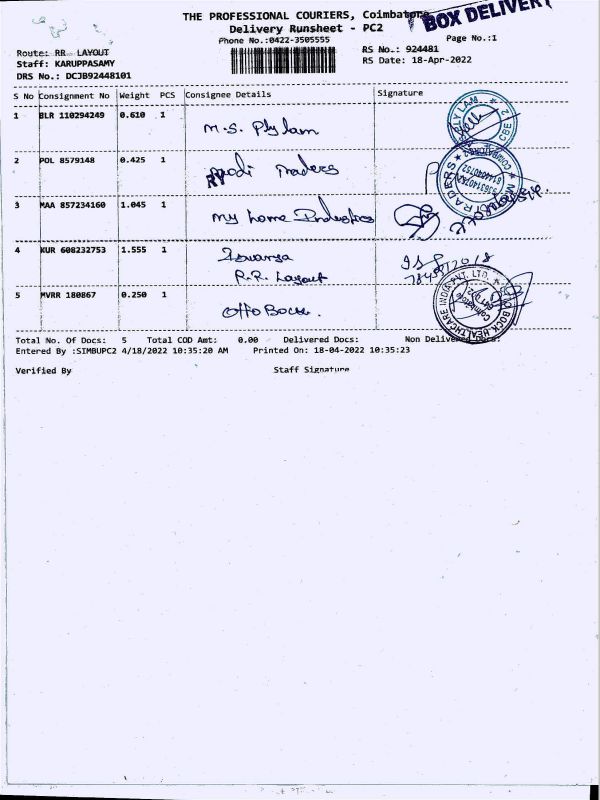 THE PROFESSIONAL COURIERS, Coimbatore
BOX DELIVERY
Delivery Runsheet - PC2
Phone No.:0422-3505555
Page No.:1
Route: RR LAYOUT
RS No.: 924481
Staff: KARUPPASAMY
RS Date: 18-Apr-2022
DRS No.: DCJB92448101
S No Consignment No Weight PCS Consignee Details Signature
1 BLR 110294249 0.610 1 M.S. Plylam
PLYLAM CBE-2
2 POL 8579148 0.425 1 Modi Traders
TRADERS
3 MAA 857234160 1.045 1 My home Industries
4 KUR 608232753 1.555 1 Iswarya
R.R. Layout
5 MVRR 180867 0.250 1 Otto Bock.
OTTO BOCK HEALTHCARE INDIA PVT. LTD. Coimbatore
Total No. Of Docs: 5 Total COD Amt: 0.00 Delivered Docs: Non Delivered Docs:
Entered By :SIMBUPC2 4/18/2022 10:35:20 AM Printed On: 18-04-2022 10:35:23
Verified By Staff Signature